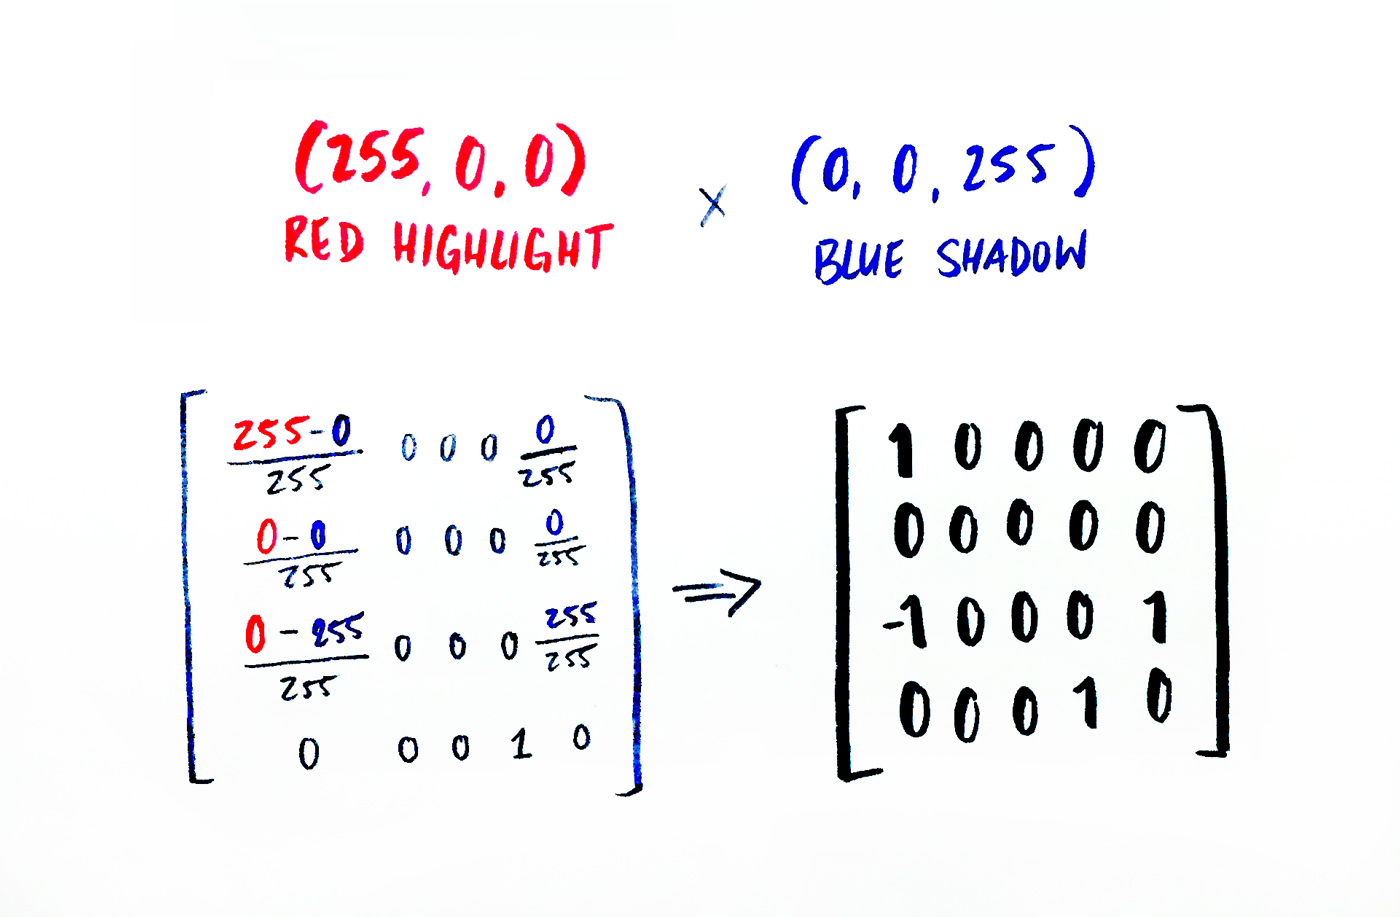 (255, 0, 0) × (0, 0, 255)
RED HIGHLIGHT BLUE SHADOW
255-0/255 0 0 0 0/255
0-0/255 0 0 0 0/255
0-255/255 0 0 0 255/255
0 0 0 1 0
⇒
1 0 0 0 0
0 0 0 0 0
-1 0 0 0 1
0 0 0 1 0